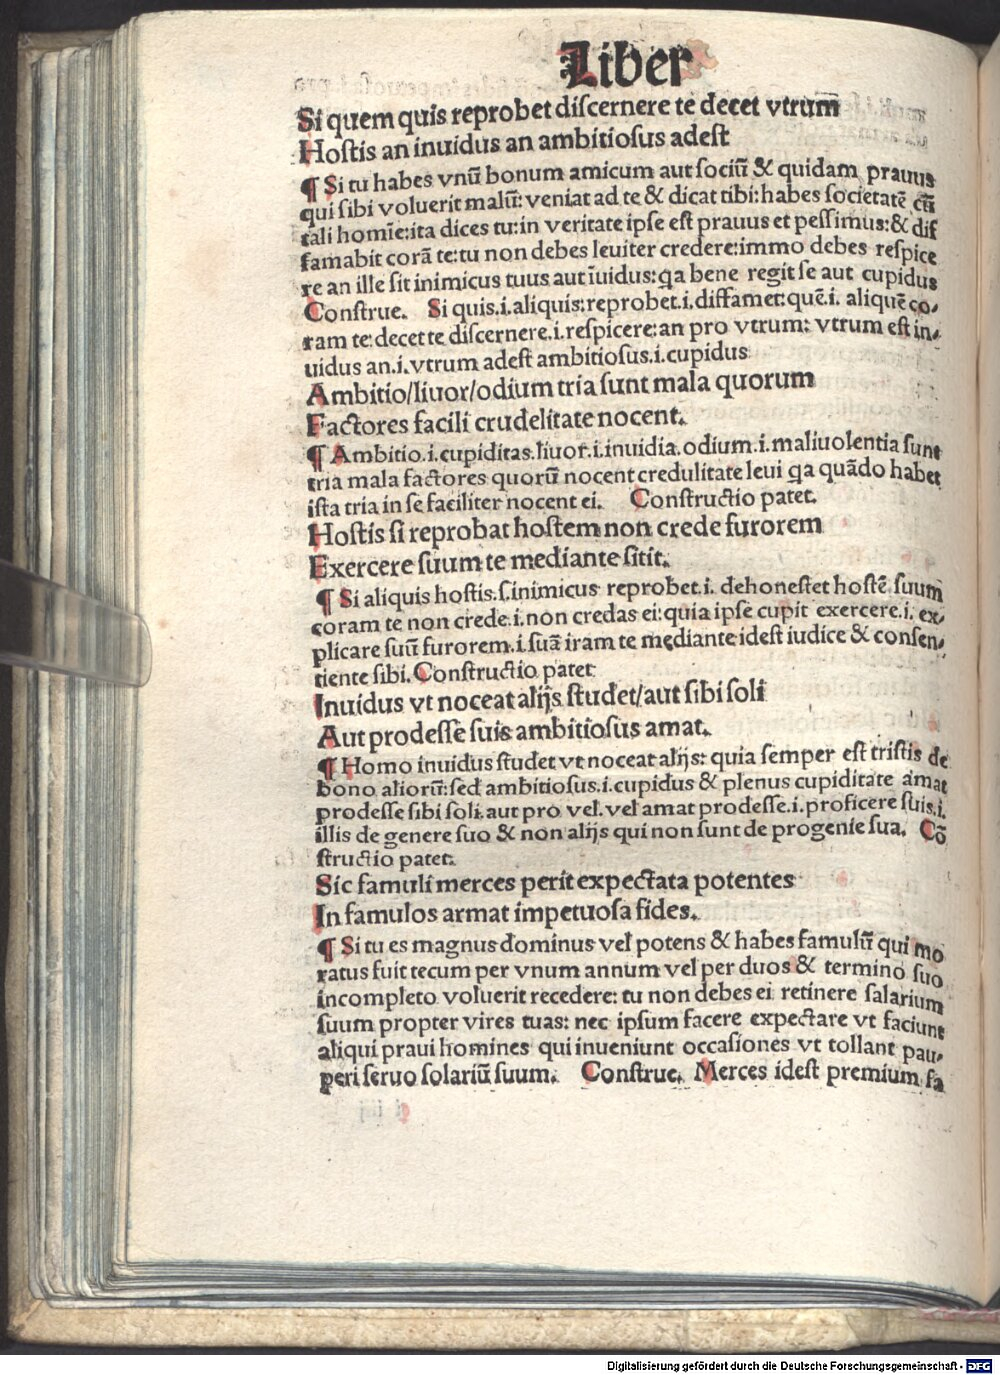 Liber
Si quem quis reprobet discernere te decet vtrum̄
Hostis an inuidus an ambitiosus adest
¶ Si tu habes vnū bonum amicum aut sociū & quidam prauus
qui sibi voluerit malū: veniat ad te & dicat tibi: habes societatē cū
tali homīe: ita dices tu: in veritate ipse est prauus et pessimus: & dif
famabit corā te: tu non debes leuiter credere: immo debes respice
re an ille sit inimicus tuus aut īuidus: qa bene regit se aut cupidus
Construe. Si quis .i. aliquis: reprobet .i. diffamet: quē .i. aliquē co-
ram te: decet te discernere .i. respicere: an pro vtrum: vtrum est in-
uidus an .i. vtrum adest ambitiosus .i. cupidus
Ambitio/liuor/odium tria sunt mala quorum
Factores facili crudelitate nocent.
¶ Ambitio .i. cupiditas. liuor .i. inuidia. odium .i. maliuolentia sunt
tria mala factores quorū nocent credulitate leui qa quādo habet
ista tria in se faciliter nocent ei. Constructio patet.
Hostis si reprobat hostem non crede furorem
Exercere suum te mediante sitit.
¶ Si aliquis hostis .s. inimicus reprobet .i. dehonestet hostē suum
coram te non crede .i. non credas ei: quia ipse cupit exercere .i. ex-
plicare suū furorem .i. suā iram te mediante idest iudice & consen-
tiente sibi. Constructio patet
Inuidus vt noceat alijs studet/aut sibi soli
Aut prodesse suis ambitiosus amat.
¶ Homo inuidus studet vt noceat alijs: quia semper est tristis de
bono aliorū: sed ambitiosus .i. cupidus & plenus cupiditate amat
prodesse sibi soli. aut pro vel. vel amat prodesse .i. proficere suis .i.
illis de genere suo & non alijs qui non sunt de progenie sua. Cō
structio patet.
Sic famuli merces perit expectata potentes
In famulos armat impetuosa fides.
¶ Si tu es magnus dominus vel potens & habes famulū qui mo
ratus fuit tecum per vnum annum vel per duos & termino suo
incompleto voluerit recedere: tu non debes ei retinere salarium
suum propter vires tuas: nec ipsum facere expectare vt faciunt
aliqui praui homines qui inueniunt occasiones vt tollant pau-
peri seruo solariū suum. Construe. Merces idest premium fa
Digitalisierung gefördert durch die Deutsche Forschungsgemeinschaft - DFG